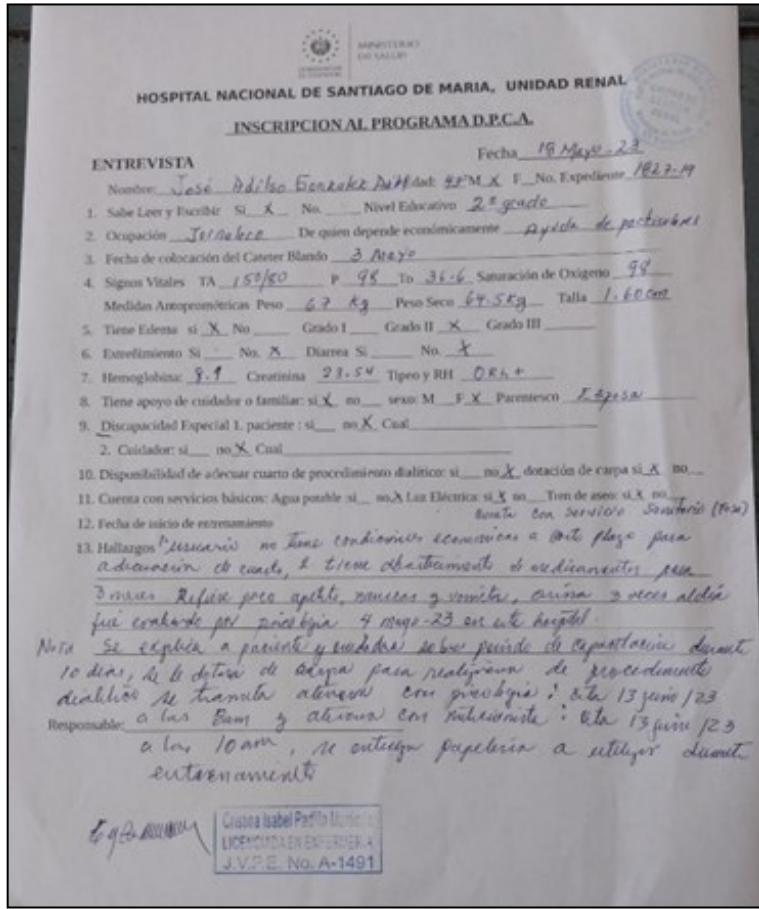 MINISTERIO
DE SALUD
HOSPITAL NACIONAL DE SANTIAGO DE MARIA, UNIDAD RENAL
INSCRIPCION AL PROGRAMA D.P.C.A.
Fecha 18 Mayo-23
ENTREVISTA
Nombre: José Adilso Gonzalez dad: M X F No. Expediente 1827-19
1. Sabe Leer y Escribir Si X No. Nivel Educativo 2º grado
2. Ocupación Jornalero De quien depende económicamente Ayuda de particulares
3. Fecha de colocación del Cateter Blando 3 Mayo
4. Signos Vitales TA 150/80 P 98 To 36.6 Saturación de Oxigeno 98
Medidas Antropométricas Peso 67 Kg Peso Seco 64.5Kg Talla 1.60cm
5. Tiene Edema si X No Grado I Grado II X Grado III
6. Estreñimiento Si No. X Diarrea Si No. X
7. Hemoglobina: 8.9 Creatinina 23.54 Tipeo y RH ORh+
8. Tiene apoyo de cuidador o familiar: si X no sexo: M F X Parentesco Esposa
9. Discapacidad Especial 1. paciente : si no X Cual
2. Cuidador: si no X Cual
10. Disponibilidad de adecuar cuarto de procedimiento dialítico: si no X dotación de carpa si X no
11. Cuenta con servicios básicos: Agua potable si no X Luz Eléctrica: si X no Tren de aseo: si X no
cuenta con servicio sanitario (fosa)
12. Fecha de inicio de entrenamiento
13. Hallazgos usuario no tiene condiciones economicas a corto plazo para
adecuación de cuarto, tiene abastecimiento de medicamentos para
3 meses Refiere poco apetito, nauseas y vomitos, orina 3 veces al día
fué evaluado por psicología 4 mayo-23 en este hospital.
Nota Se explica a paciente y cuidadora sobre periodo de capacitación durante
10 días, se le dotara de carpa para de procedimiento
dialitico se tramita atención con psicologia: cita 13 junio/23
Responsable: a las 8am y atencion con nutricionista: cita 13 junio/23
a las 10am, se entrega papeleria a utilizar durante
entrenamiento
Cristina Isabel Padilla
LICENCIADA EN ENFERMERIA
J.V.P.E. No. A-1491